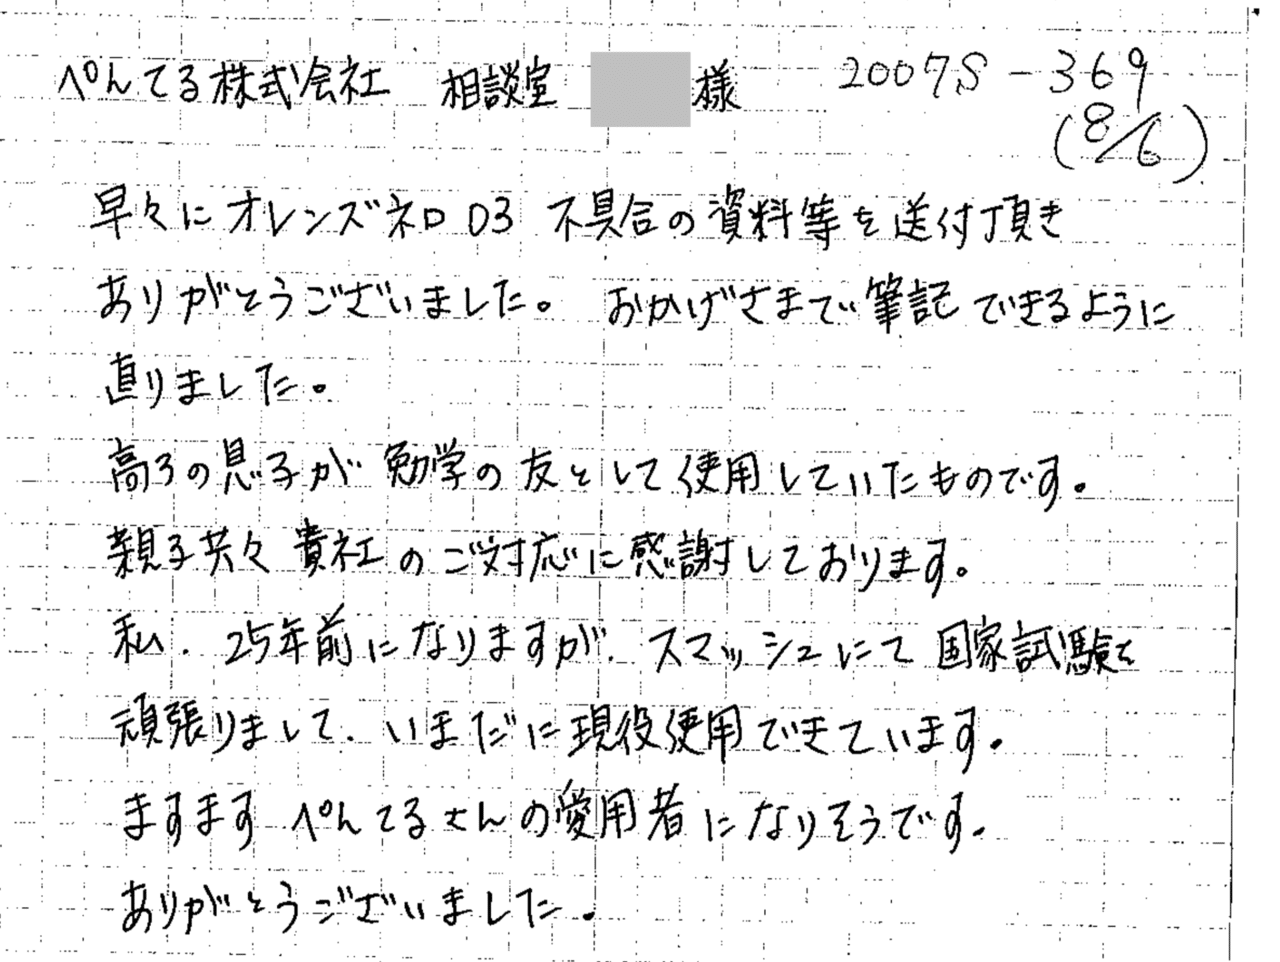 ぺんてる株式会社 相談室 様 2007S-369
(8/6)
早々にオレンズネロ03 不具合の資料等を送付頂き
ありがとうございました。 おかげさまで筆記できるように
直りました。
高3の息子が勉学の友として使用していたものです。
親子共々貴社のご対応に感謝しております。
私、25年前になりますが、スマッシュにて国家試験を
頑張りまして、いまだに現役使用できています。
ますますぺんてるさんの愛用者になりそうです。
ありがとうございました。